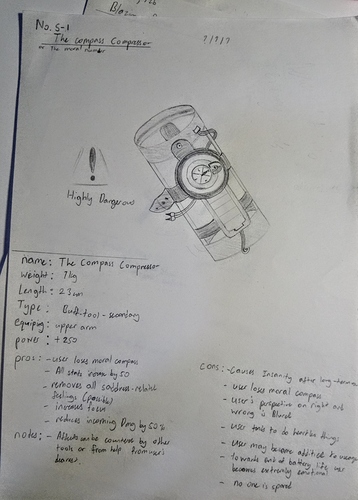 No. S-1
The Compass Compressor
or the moral number
?/?/?
Highly Dangerous
name: The Compass Compressor
weight: 7kg
Length: 23cm
Type: Buff-tool-secondary
equiping: upper arm
power: +250
pros: -user loses moral compass
- All stats increase by 50
- removes all saddness-relate
feelings (possible)
- increases focus
- reduces incoming Dmg by 50%
notes: - Affects can be countered by other
tools or from help from user's
dearest.
cons: -Causes Insanity after long-term use
- user loses moral compass
- user's perspective on right and
wrong is Blured
- user tends to do horrible things
- user may become addicted to usage
- towards end of battery life, user
becomes extremely emotional
- no one is spared